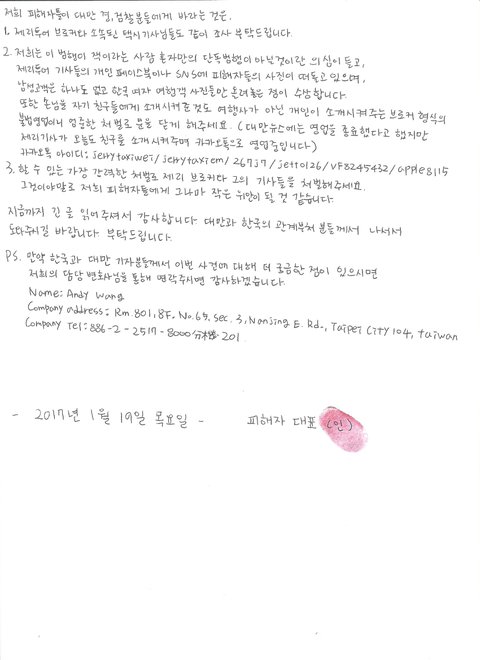 저희 피해자들이 대만 경,검찰분들에게 바라는 것은,
1. 제리투어 브로커와 소속된 택시기사님들도 같이 조사 부탁드립니다.
2. 저희는 이 범행이 잭이라는 사람 혼자만의 단독범행이 아닐것이란 의심이 들고,
제리투어 기사들의 개인 페이스북이나 SNS에 피해자들의 사진이 떠돌고 있으며,
남성고객은 하나도 없고 한국 여자 여행객 사진들만 올려놓은 점이 수상합니다.
또한 손님을 자기 친구들에게 소개시켜준 것도 여행사가 아닌 개인이 소개시켜주는 브로커 형식의
불법영업이니 엄중한 처벌로 문을 닫게 해주세요. (대만뉴스에는 영업을 종료했다고 했지만
제리기사가 오늘도 친구를 소개시켜주며 카카오톡으로 영업중입니다)
카카오톡 아이디: jerrytaxiwei/jerrytaxicm/26737/jett0126/VF8245432/apple8115
3. 할 수 있는 가장 강력한 처벌로 제리 브로커와 그의 기사들을 처벌해주세요.
그것이야말로 저희 피해자들에게 그나마 작은 위안이 될 것 같습니다.
지금까지 긴 글 읽어주셔서 감사합니다. 대만과 한국의 관계부처 분들께서 나서서
도와주시길 바랍니다. 부탁드립니다.
PS. 만약 한국과 대만 기자분들께서 이번 사건에 대해 더 궁금한 점이 있으시면
저희의 담당 변호사님을 통해 연락주시면 감사하겠습니다.
Name: Andy Wang
Company address: Rm.801, 8F, No.65, sec.3, Nanjing E. Rd., Taipei City 104, taiwan
Company Tel: 886-2-2517-8000分機201
- 2017년 1월 19일 목요일 - 피해자 대표 (인)